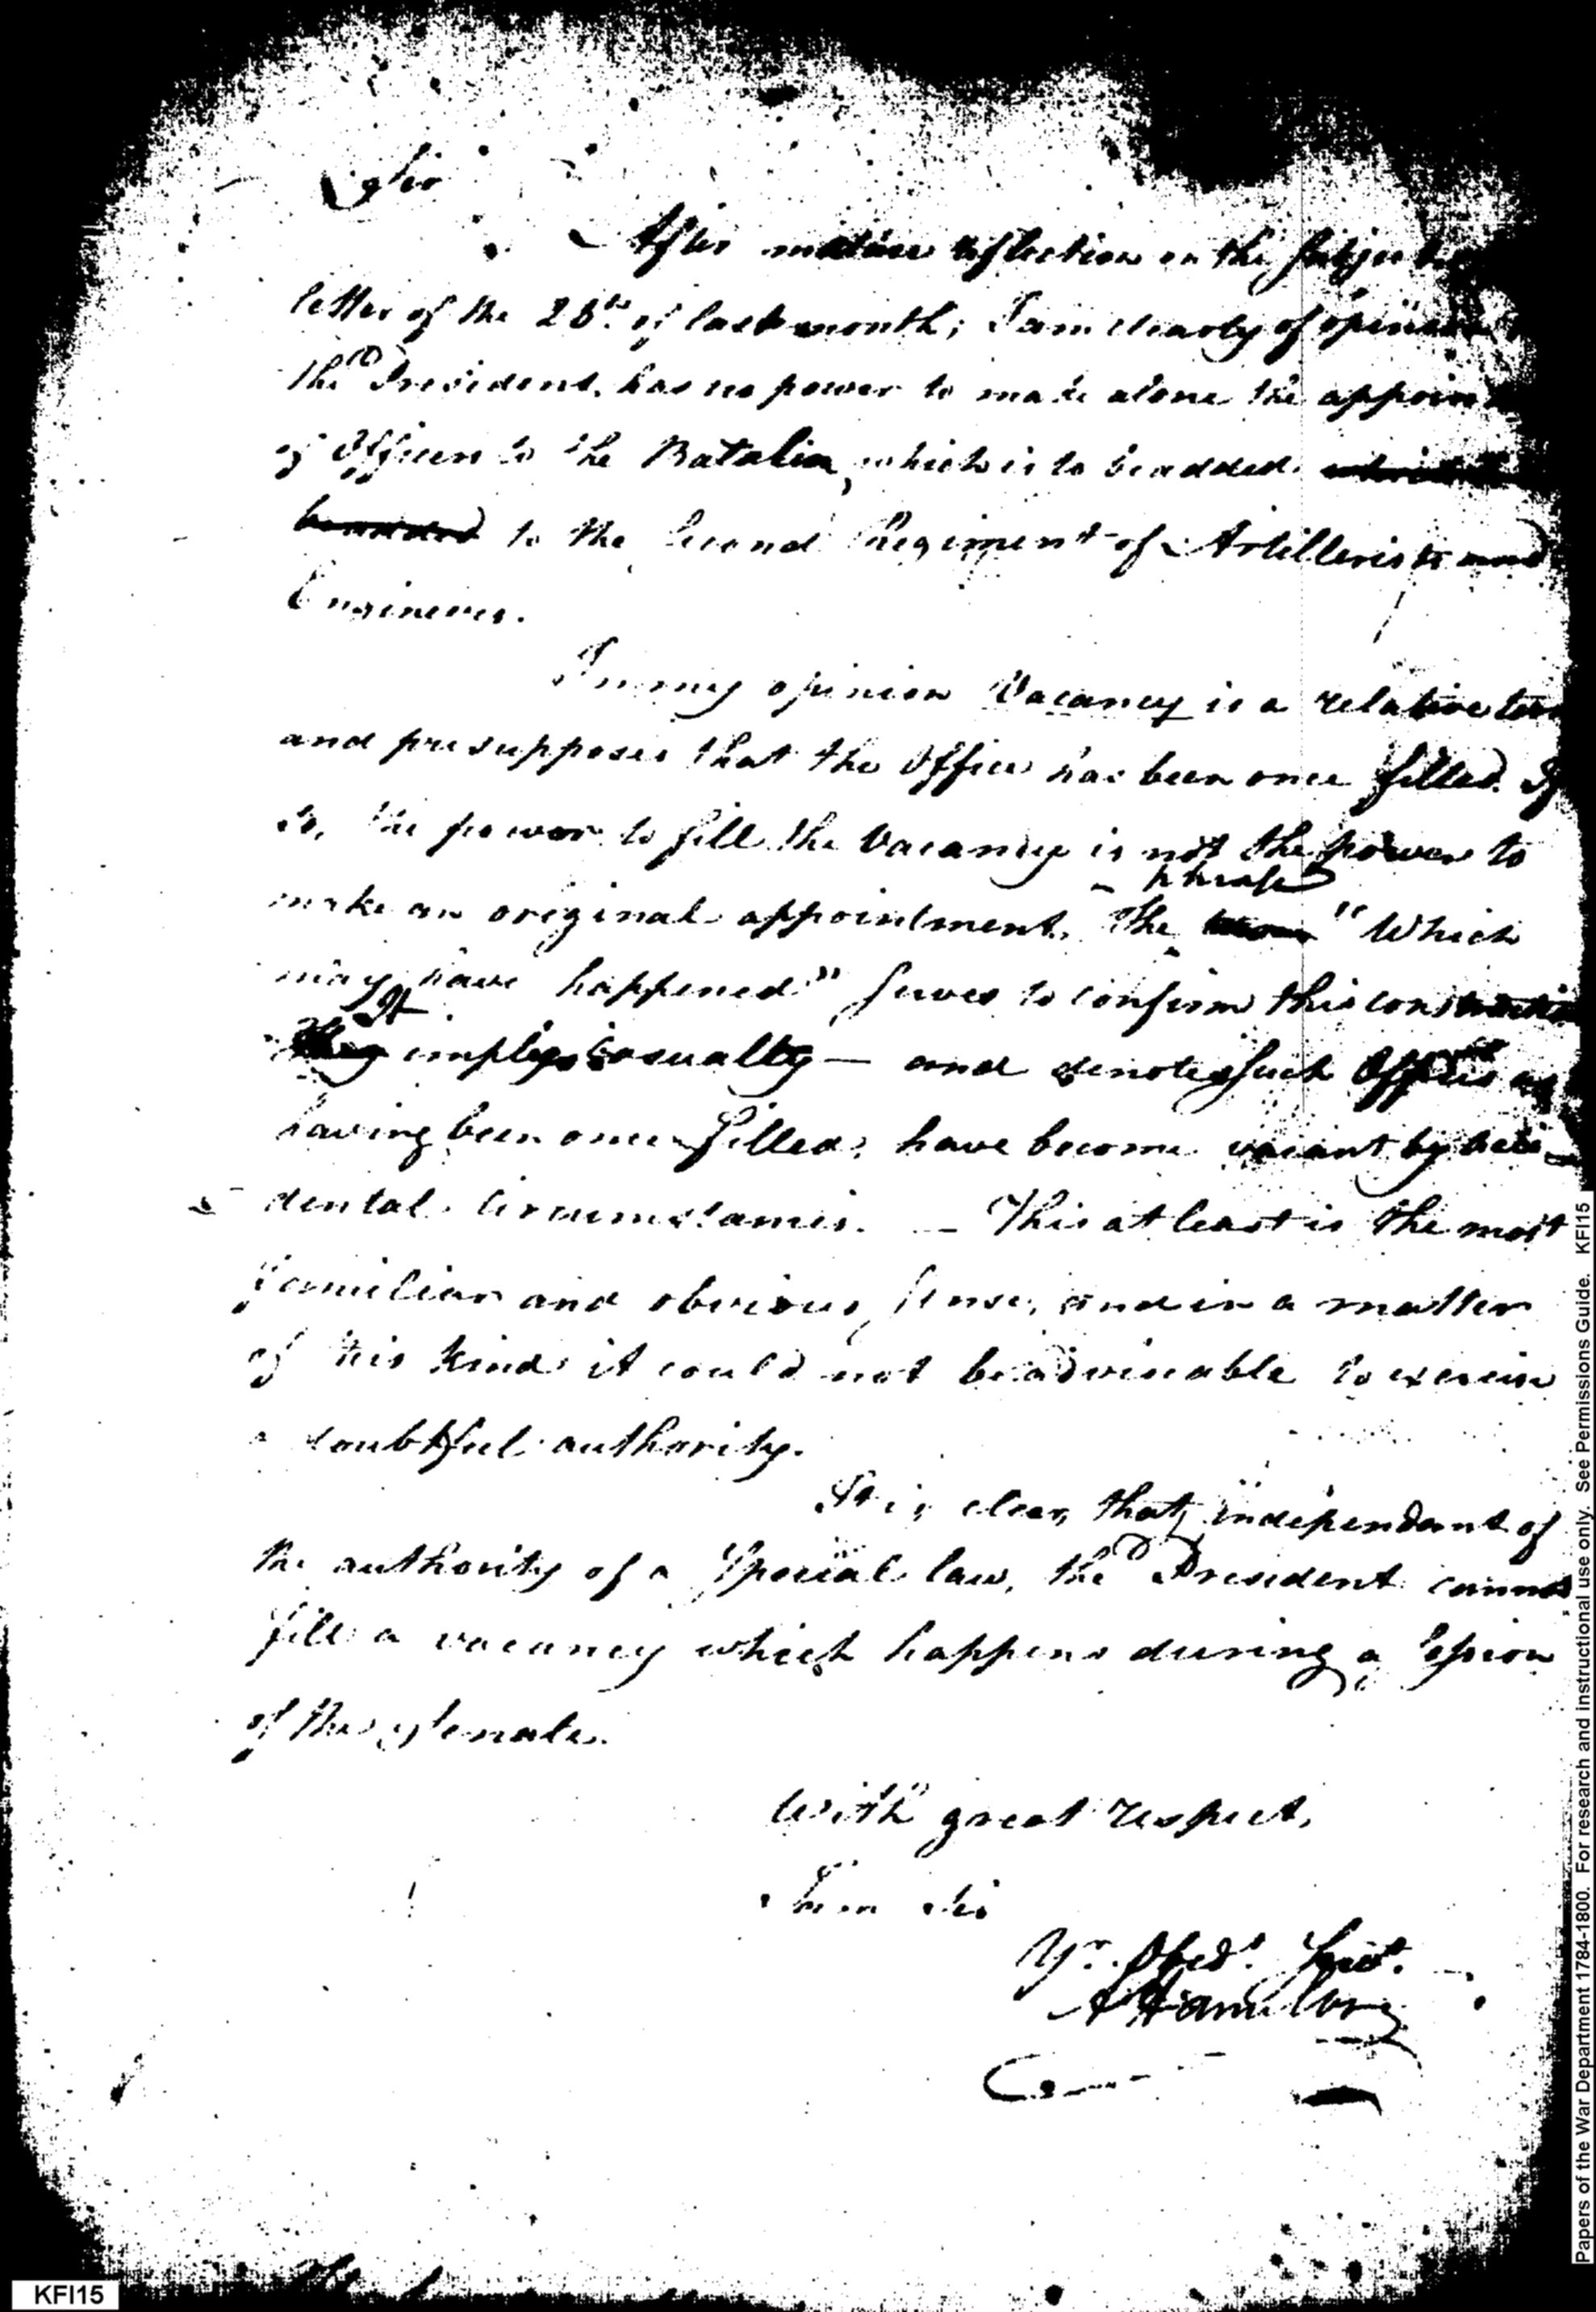 Sir
After mature reflection on the subject
letter of the 28th of last month; I am clearly of opinion
the President, has no power to make alone the appoin
of Officers to the Batalion, which is to be added
be added to the Second Regiment of Artillerists and
Engineers.
In my opinion Vacancy is a relative term
and presupposes that the Office has been once filled. If
so, the power to fill the Vacancy is not the power to
phrase
make an original appointment. The term "Which
may have happened" serves to confirm this construction
It
They implies casualty — and denotes such Offices as
having been once filled, have become vacant by acci-
dental circumstances. — This at least is the most
familiar and obvious sense, and in a matter
of this kind it could not be adviseable to exercise
a doubtful authority.
It is clear, that, independant of
the authority of a special law, the President cannot
fill a vacancy which happens during a session
of the Senate.
With great respect,
I am Sir
Yr. Obedt. Servt.
A Hamilton
Papers of the War Department 1784-1800. For research and instructional use only. See Permissions Guide. KFI15
KFI15